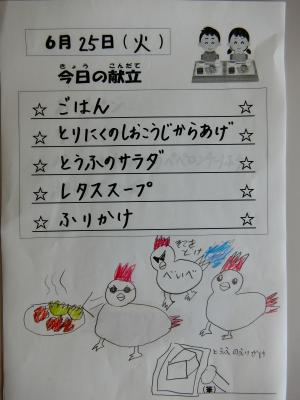 6月25日(火)
きょう こんだて
今日の献立
☆ ごはん ☆
☆ とりにくのしおこうじからあげ ☆
☆ とうふのサラダ ☆
☆ レタススープ ☆
☆ ふりかけ ☆
べいべ
とうふのふりかけ
(筆)